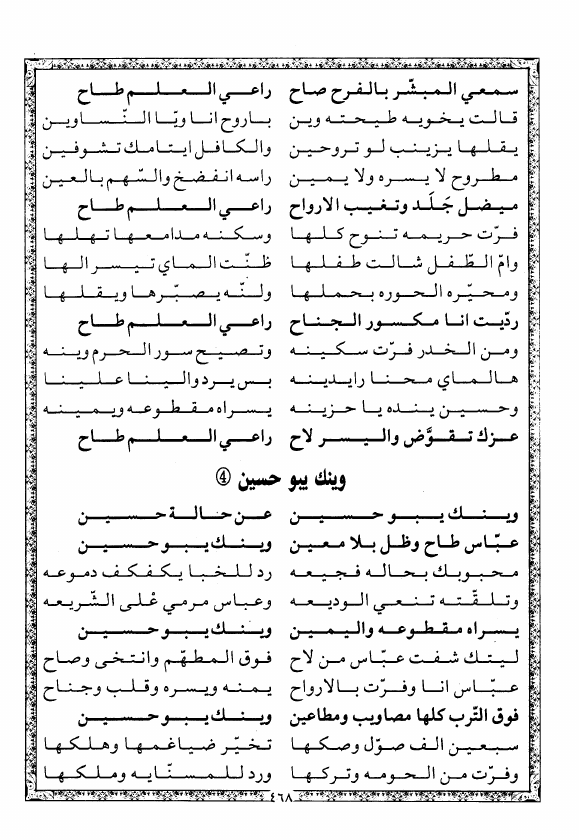 سمعي المبشّر بالفرح صاح راعي العلم طاح
قالت يخويه طيحته وين باروح انا ويّا النّساوين
يقلها يزينب لو تروحين والكافل ايتامك تشوفين
مطروح لا يسره ولا يمين راسه انفضخ والسّهم بالعين
ميضل جَلَد وتغيب الارواح راعي العلم طاح
فرّت حريمه تنوح كلها وسكنه مدامعها تهلها
وامّ الطّفل شالت طفلها ظنّت الماي تيسر الها
ومحيّره الحوره بحملها ولنّه يصبّرها ويقلها
ردّيت انا مكسور الجناح راعي العلم طاح
ومن الخدر فرّت سكينه وتصيح سور الحرم وينه
هالماي محنا رايدينه بس يرد والينا علينا
وحسين ينده يا حزينه يسراه مقطوعه ويمينه
عزك تقوَّض واليسر لاح راعي العلم طاح
وينك يبو حسين ④
وينك يبو حسين عن حالة حسين
عبّاس طاح وظل بلا معين وينك يبو حسين
محبوبك بحاله فجيعه رد للخبا يكفكف دموعه
وتلقّته تنعي الوديعه وعباس مرمي عْلى الشّريعه
يسراه مقطوعه واليمين وينك يبو حسين
ليتك شفت عبّاس من لاح فوق المطهّم وانتخى وصاح
عبّاس انا وفرّت بالارواح يمنه ويسره وقلب وجناح
فوق التّرب كلها مصاويب ومطاعين وينك يبو حسين
سبعين الف صوّل وصكها تخيّر ضياغمها وهلكها
وفرّت من الحومه وتركها ورد للمسنّايه وملكها
٤٦٨